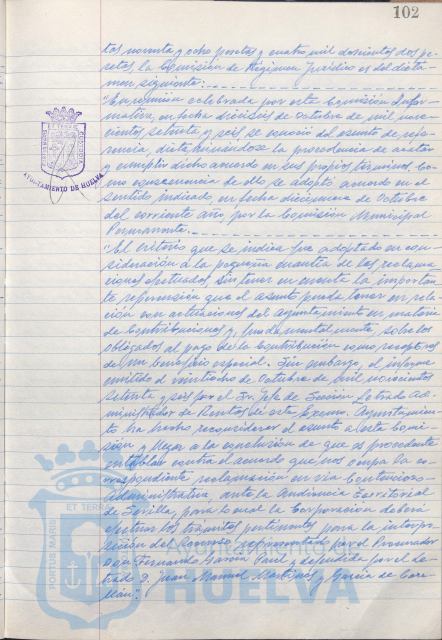 102
tos noventa y ocho pesetas y cuatro mil doscientas dos pe-
setas, la Comisión de Régimen Jurídico es del dicta-
men siguiente:
"En reunión celebrada por esta Comisión Infor-
mativa, en fecha dieciseis de Octubre de mil nove-
cientos setenta y seis se conoció del asunto de refe-
rencia, dictaminándose la procedencia de acatar
y cumplir dicho acuerdo en sus propios términos. Co-
mo consecuencia de ello se adoptó acuerdo en el
sentido indicado, en fecha diecinueve de Octubre
del corriente año, por la Comisión Municipal
Permanente.
"El criterio que se indica fue adoptado en con-
sideración a la pequeña cuantía de las reclama
ciones efectuadas sin tener en cuenta la importan-
te repercusión que el asunto pueda tener en rela
ción con actuaciones del Ayuntamiento en materia
de Contribuciones y, fundamentalmente, sobre los
obligados al pago de la Contribución como receptores
de un beneficio especial. Sin embargo, el informe
emitido el veintiocho de Octubre de mil novecientos
setenta y seis por el Sr. Jefe de Sección Letrado Ad-
ministrador de Rentas de este Excmo. Ayuntamien-
to ha hecho reconsiderar el asunto a esta Comi-
sión y llegar a la conclusión de que es procedente
entablar contra el acuerdo que nos ocupa la co-
rrespondiente reclamación en vía Contencioso-
Administrativa, ante la Audiencia Territorial
de Sevilla, para lo cual la Corporación deberá
efectuar los trámites pertinentes para la interpo-
sición del Recurso representado por el Procurador
Don Fernando García Paul y defendida por el Le-
trado D. Juan Manuel y García de
AYUNTAMIENTO DE HUELVA
PORTUS MARIS
ET TERRAE
Ayuntamiento de
HUELVA